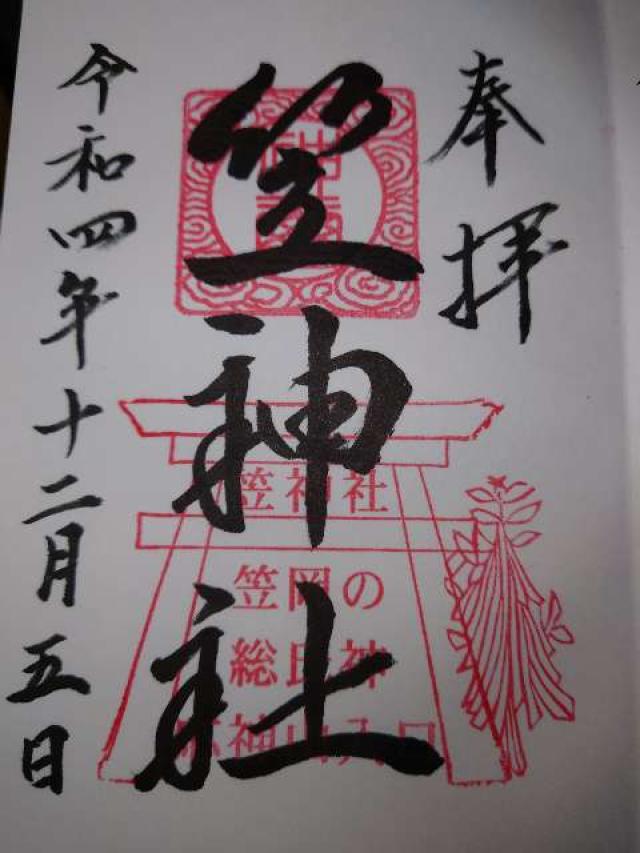 奉拝
笠神社
笠神社
笠岡の
総氏神
神山入口
令和四年十二月五日